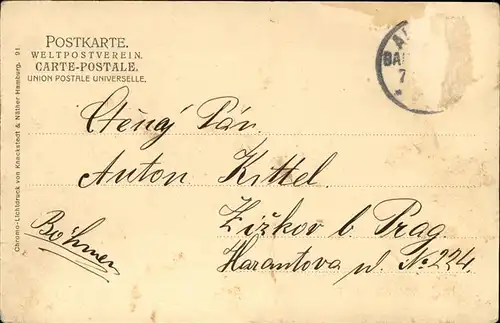 POSTKARTE.
WELTPOSTVEREIN.
CARTE-POSTALE.
UNION POSTALE UNIVERSELLE.
Chromo-Lichtdruck von Knackstedt & Näther Hamburg. 91.
Ctěný Pán
Anton Kittel
Žižkov b. Prag
Harantova ul. No 224.
Böhmen